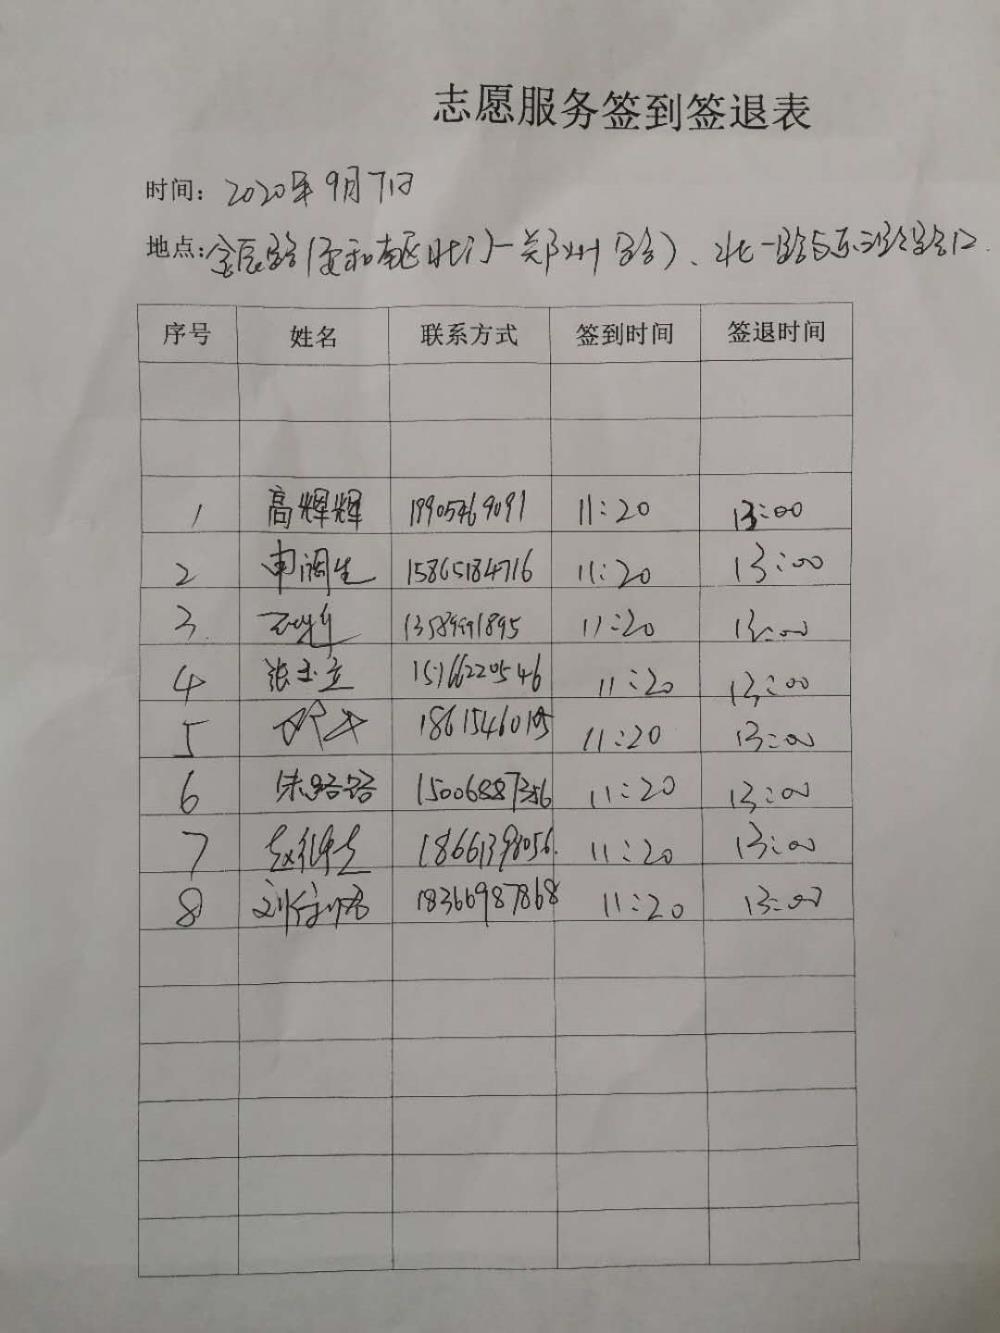 志愿服务签到签退表
时间：2020年9月7日
地点：金辰路（安和南区北门－郑州路）、北一路与东三路路口
序号 姓名 联系方式 签到时间 签退时间
1 高辉辉 19905469091 11:20 13:00
2 15865184716 11:20 13:00
3 11:20 13:00
4 张玉立 15166220546 11:20 13:00
5 11:20 13:00
6 朱路路 15006887356 11:20 13:00
7 18661398056 11:20 13:00
8 18366987868 11:20 13:00